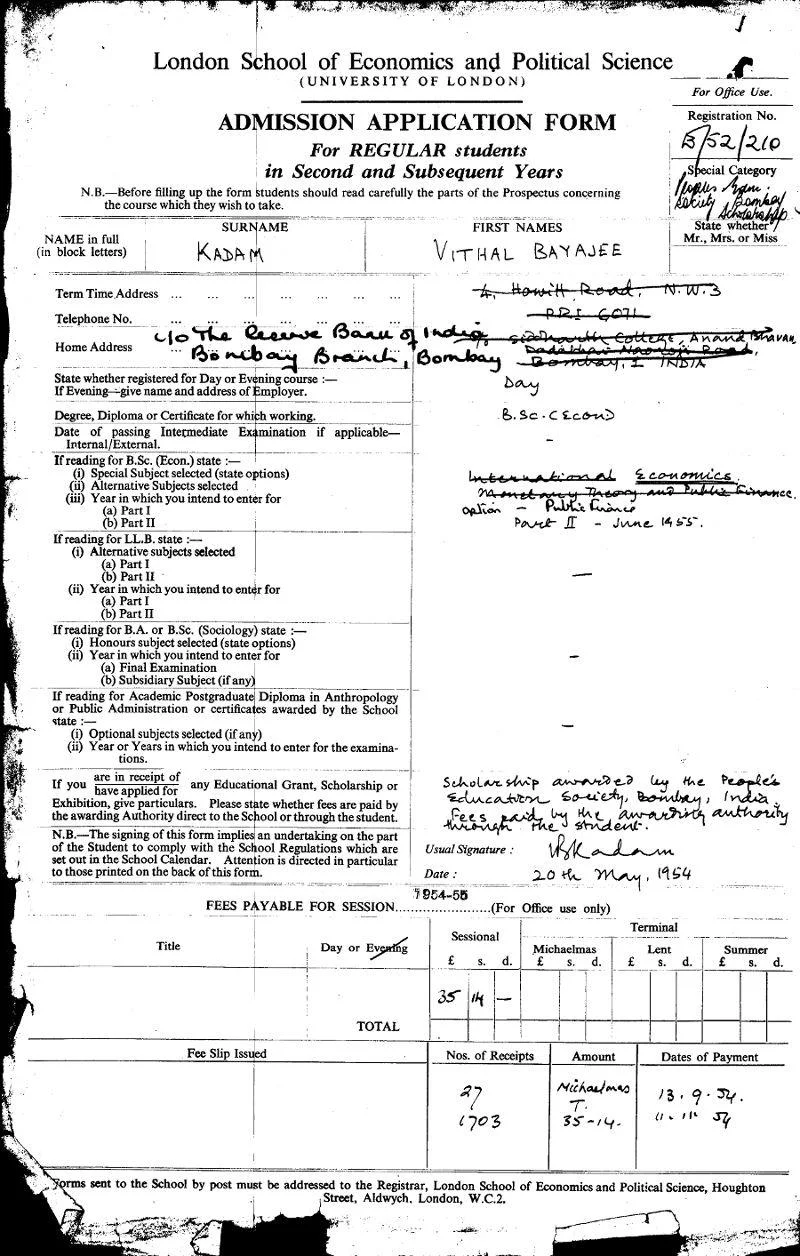 London School of Economics and Political Science
(UNIVERSITY OF LONDON)
For Office Use.
ADMISSION APPLICATION FORM
Registration No.
B/52/210
For REGULAR students
in Second and Subsequent Years
Special Category
Peoples Edn.
Society Bombay
Scholarship
N.B.—Before filling up the form students should read carefully the parts of the Prospectus concerning
the course which they wish to take.
State whether
Mr., Mrs. or Miss
NAME in full
(in block letters)
SURNAME
KADAM
FIRST NAMES
VITHAL BAYAJEE
Term Time Address ... ... ... ... ... 4, Howitt Road, N.W.3
Telephone No. ... ... ... ... ... PRI 6071
Home Address ... c/o The Reserve Bank of India, Siddharth College, Anand Bhavan,
Bombay Branch, Bombay Dadabhai Naoroji Road,
Bombay, 1 INDIA
State whether registered for Day or Evening course :—
If Evening—give name and address of Employer.
Day
Degree, Diploma or Certificate for which working.
B.Sc. (Econ)
Date of passing Intermediate Examination if applicable—
Internal/External.
–
If reading for B.Sc. (Econ.) state :—
(i) Special Subject selected (state options)
International Economics
(ii) Alternative Subjects selected
Monetary Theory and Public Finance.
(iii) Year in which you intend to enter for
option – Public Finance
(a) Part I
(b) Part II
Part II – June 1955.
If reading for LL.B. state :—
(i) Alternative subjects selected
(a) Part I
(b) Part II
—
(ii) Year in which you intend to enter for
(a) Part I
(b) Part II
If reading for B.A. or B.Sc. (Sociology) state :—
(i) Honours subject selected (state options)
(ii) Year in which you intend to enter for
–
(a) Final Examination
(b) Subsidiary Subject (if any)
If reading for Academic Postgraduate Diploma in Anthropology
or Public Administration or certificates awarded by the School
state :—
–
(i) Optional subjects selected (if any)
(ii) Year or Years in which you intend to enter for the examina-
tions.
If you are in receipt of / have applied for any Educational Grant, Scholarship or
Exhibition, give particulars. Please state whether fees are paid by
the awarding Authority direct to the School or through the student.
Scholarship awarded by the People's
Education Society, Bombay, India.
Fees paid by the awarding authority
through the student.
N.B.—The signing of this form implies an undertaking on the part
of the Student to comply with the School Regulations which are
set out in the School Calendar. Attention is directed in particular
to those printed on the back of this form.
Usual Signature : VBKadam
Date : 20th May, 1954
FEES PAYABLE FOR SESSION 1954-55 (For Office use only)
Title
Day or Evening
Sessional
£ s. d.
Terminal
Michaelmas
£ s. d.
Lent
£ s. d.
Summer
£ s. d.
35 14 –
TOTAL
Fee Slip Issued
Nos. of Receipts
Amount
Dates of Payment
27 Michaelmas T. 13.9.54.
1703 35-14. 11.11.54
Forms sent to the School by post must be addressed to the Registrar, London School of Economics and Political Science, Houghton
Street, Aldwych, London, W.C.2.